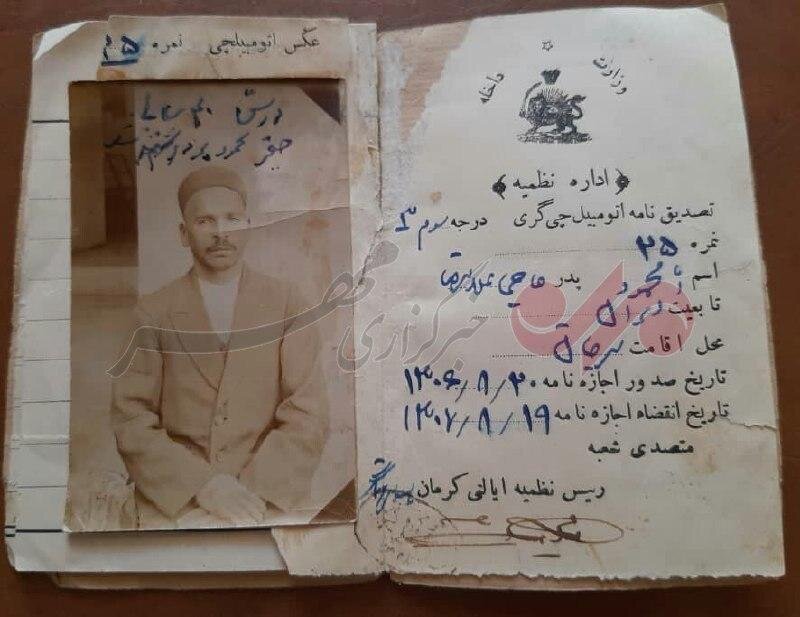 عکس اتومبیلچی نمره ۲۵
محمود
وزارت داخله
اداره نظمیه
تصدیق نامه اتومبیل چی گری درجه سوم ۳
نمره ۲۵
اسم محمود پدر حاجی
تابعیت ایران
محل اقامت سیرجان
تاریخ صدور اجازه نامه ۱۳۰۶/۸/۲۰
تاریخ انقضاء اجازه نامه ۱۳۰۷/۸/۱۹
متصدی شعبه
رئیس نظمیه ایالتی کرمان
خبرگزاری مهر